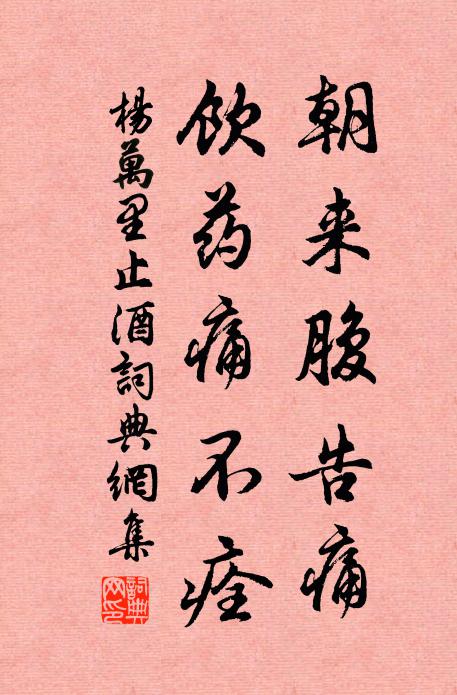 朝来腹告痛
饮药痛不痊
楊萬里止酒詞典網集
詞典網印